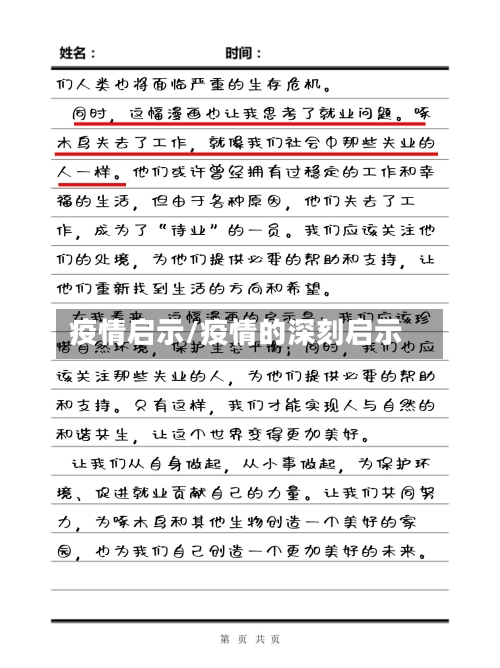 姓名： 时间：
们人类也将面临严重的生存危机。
同时，这幅漫画也让我思考了就业问题。啄
木鸟失去了工作，就像我们社会中那些失业的
人一样。他们或许曾经拥有过稳定的工作和幸
福的生活，但由于各种原因，他们失去了工
作，成为了“待业”的一员。我们应该关注他
们的处境，为他们提供必要的帮助和支持，让
他们重新找到生活的方向和希望。
在我看来，这幅漫画的启示是：我们应该珍
疫情启示/疫情的深刻启示
惜自然环境，保护生态平衡；同时，我们也应
该关注那些失业的人，为他们提供必要的帮助
和支持。只有这样，我们才能实现人与自然的
和谐共生，让这个世界变得更加美好。
让我们从自身做起，从小事做起，为保护环
境、促进就业贡献自己的力量。让我们共同努
力，为啄木鸟和其他生物创造一个美好的家
园，也为我们自己创造一个更加美好的未来。
第 页 共 页